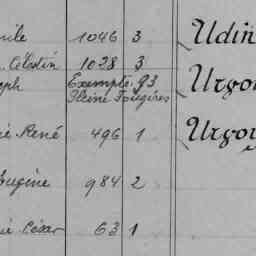 ile 1046 3 Udin
Célestin 1028 3
eph Exempté. 93 Urgo
Pleine Fougères
ie René 496 1 Urgou
Eugène 984 2
ie César 631